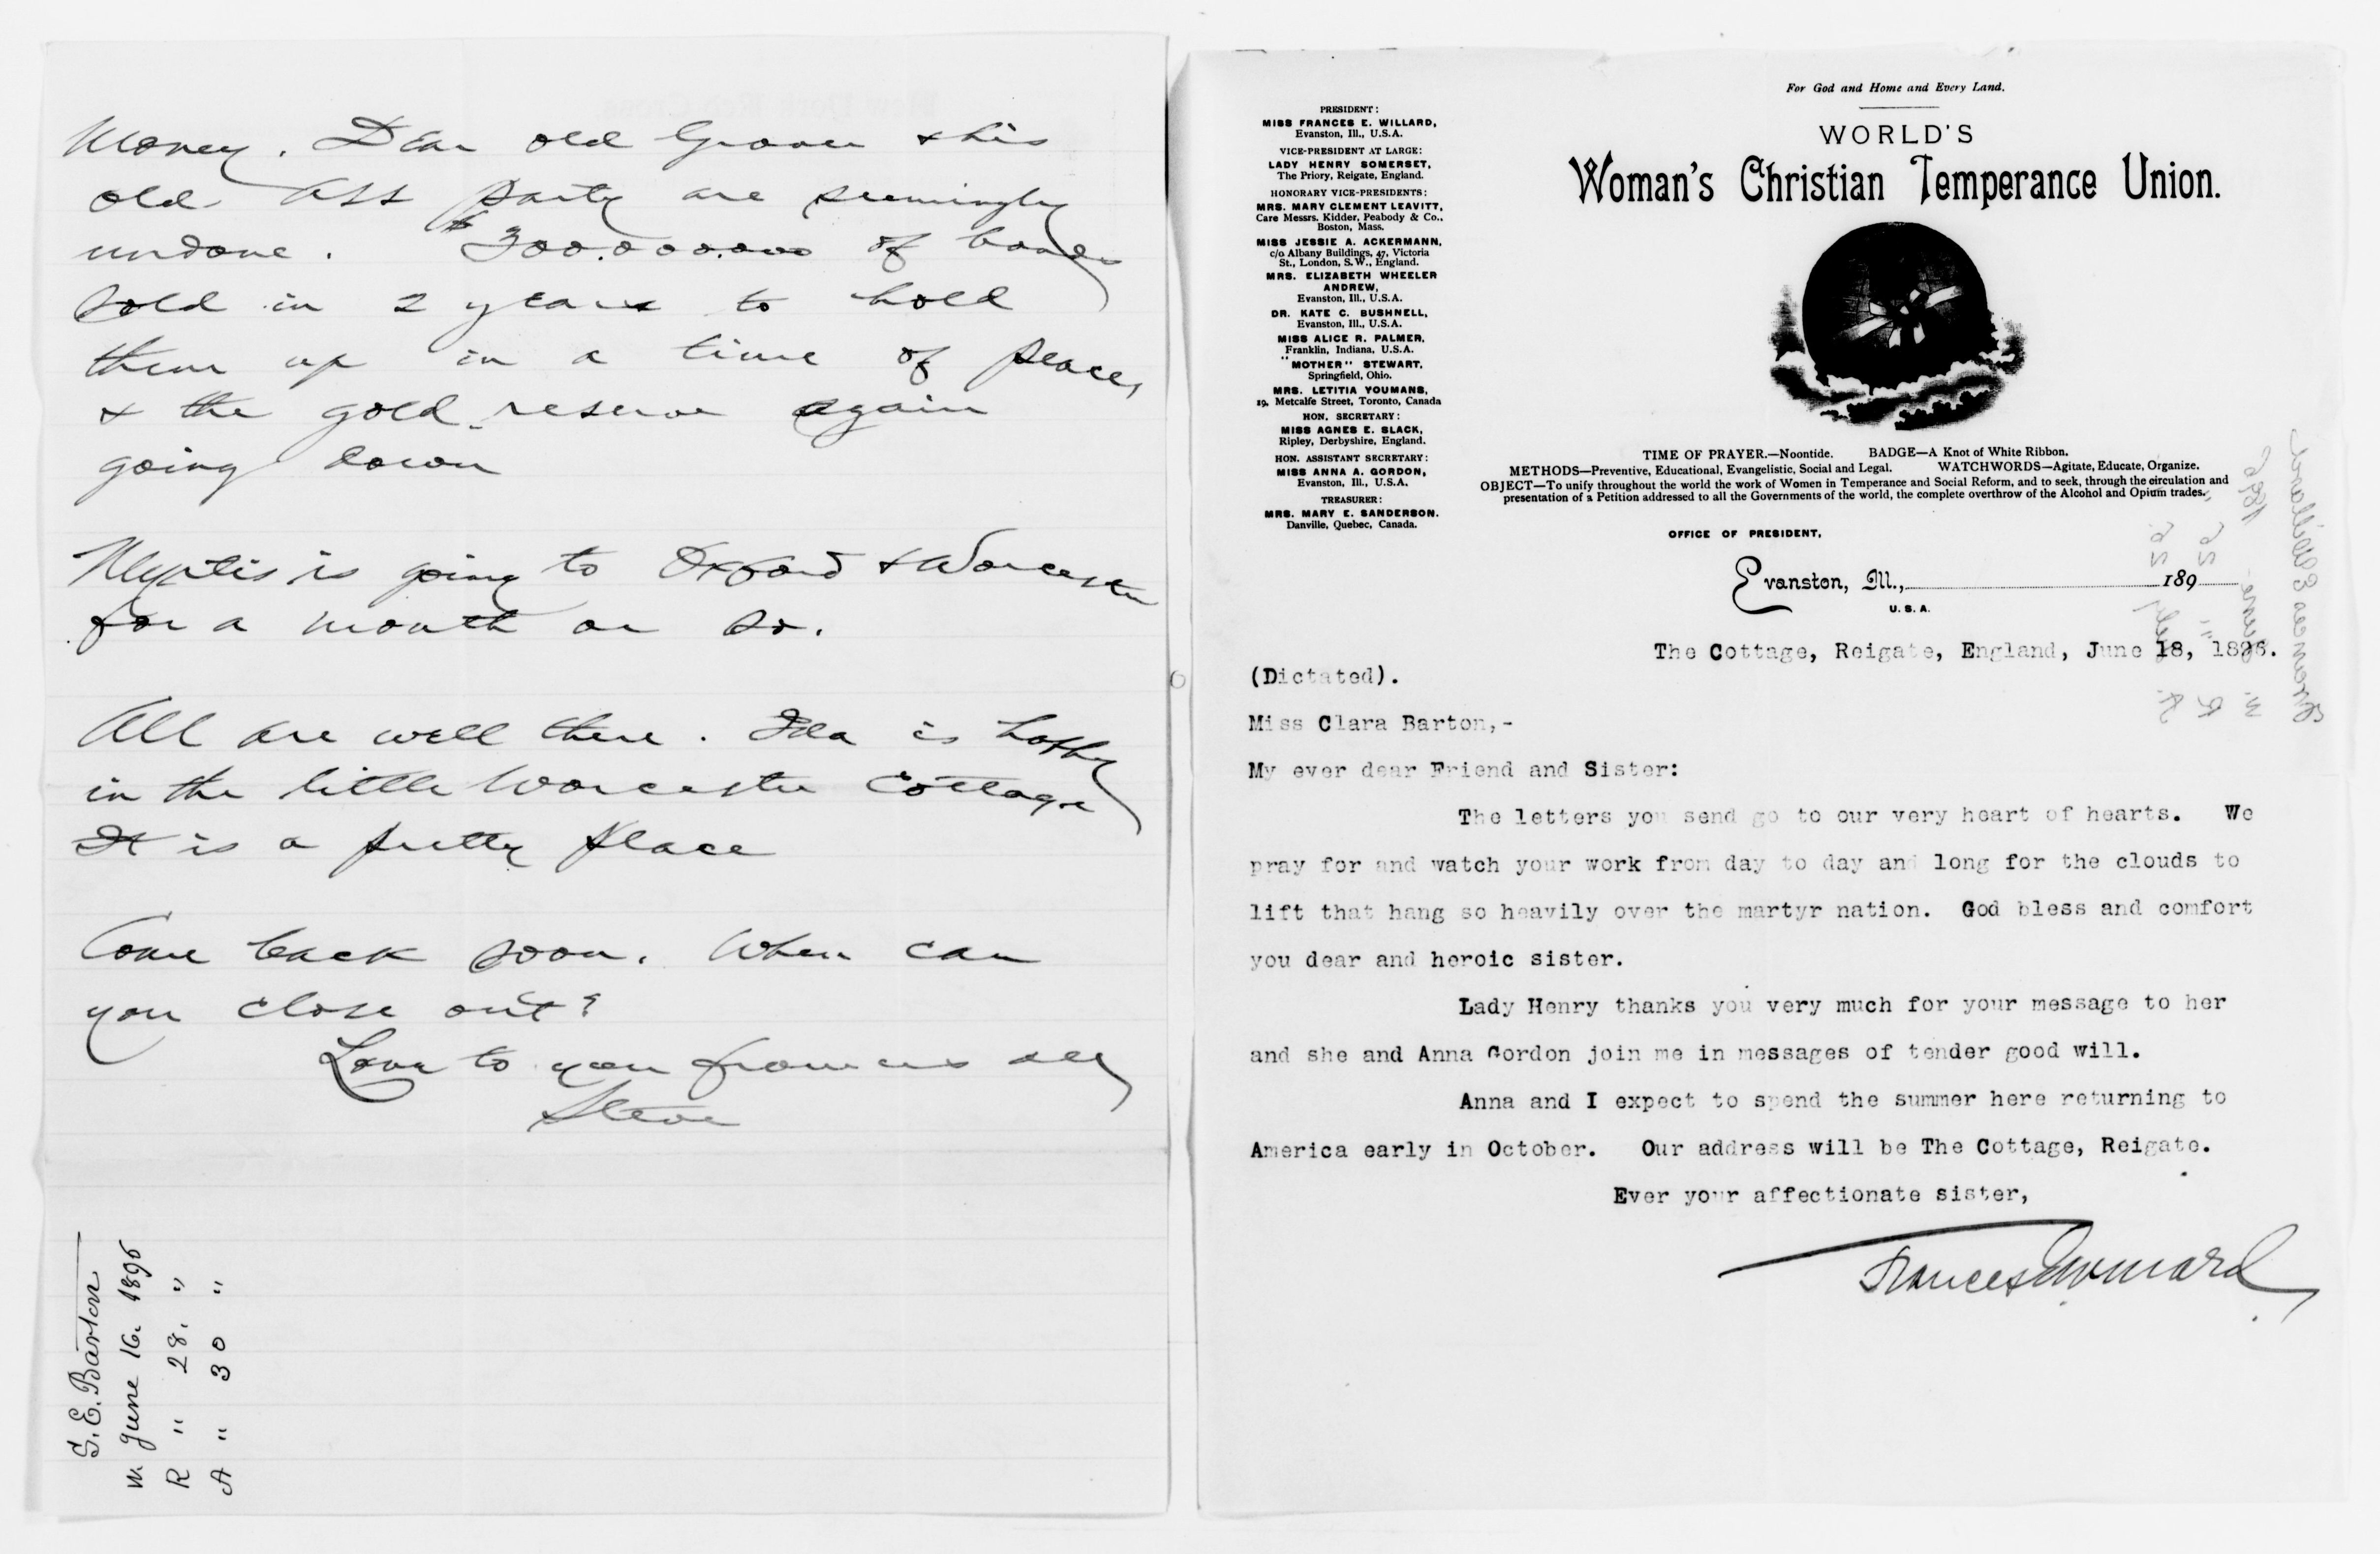 Money. Dear old Grover & his
old Ass party are seemingly
undone. $300.000.000 of bonds
sold in 2 years to hold
them up in a time of peace,
& the gold reserve again
going down
Myrtis is going to Oxford & Worcester
for a month or so.
All are well there. Ida is happy
in the little Worcester Cottage
It is a pretty place
Come back soon. When can
you close out?
Love to you from us all
Steve
S. E. Barton
W. June 16. 1896
R " 28. "
A " 30 "
For God and Home and Every Land.
WORLD'S
Woman's Christian Temperance Union.
PRESIDENT:
MISS FRANCES E. WILLARD,
Evanston, Ill., U.S.A.
VICE-PRESIDENT AT LARGE:
LADY HENRY SOMERSET,
The Priory, Reigate, England.
HONORARY VICE-PRESIDENTS:
MRS. MARY CLEMENT LEAVITT,
Care Messrs. Kidder, Peabody & Co.,
Boston, Mass.
MISS JESSIE A. ACKERMANN,
c/o Albany Buildings, 47, Victoria
St., London, S.W., England.
MRS. ELIZABETH WHEELER
ANDREW,
Evanston, Ill., U.S.A.
DR. KATE C. BUSHNELL,
Evanston, Ill., U.S.A.
MISS ALICE R. PALMER,
Franklin, Indiana, U.S.A.
"MOTHER" STEWART,
Springfield, Ohio.
MRS. LETITIA YOUMANS,
19, Metcalfe Street, Toronto, Canada
HON. SECRETARY:
MISS AGNES E. SLACK,
Ripley, Derbyshire, England.
HON. ASSISTANT SECRETARY:
MISS ANNA A. GORDON,
Evanston, Ill., U.S.A.
TREASURER:
MRS. MARY E. SANDERSON.
Danville, Quebec, Canada.
TIME OF PRAYER.—Noontide. BADGE—A Knot of White Ribbon.
METHODS—Preventive, Educational, Evangelistic, Social and Legal. WATCHWORDS—Agitate, Educate, Organize.
OBJECT—To unify throughout the world the work of Women in Temperance and Social Reform, and to seek, through the circulation and
presentation of a Petition addressed to all the Governments of the world, the complete overthrow of the Alcohol and Opium trades.
OFFICE OF PRESIDENT,
Evanston, Ill., 189
U.S.A.
The Cottage, Reigate, England, June 18, 1896.
(Dictated).
Miss Clara Barton,-
My ever dear Friend and Sister:
The letters you send go to our very heart of hearts. We
pray for and watch your work from day to day and long for the clouds to
lift that hang so heavily over the martyr nation. God bless and comfort
you dear and heroic sister.
Lady Henry thanks you very much for your message to her
and she and Anna Gordon join me in messages of tender good will.
Anna and I expect to spend the summer here returning to
America early in October. Our address will be The Cottage, Reigate.
Ever your affectionate sister,
Frances E. Willard